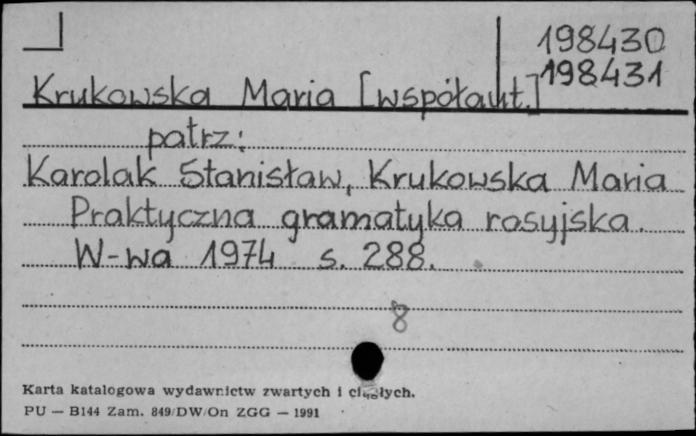 198430
198431
Krukowska Maria [współaut.]
patrz:
Karolak Stanisław, Krukowska Maria
Praktyczna gramatyka rosyjska.
W-wa 1974 s. 288.
8
Karta katalogowa wydawnictw zwartych i ciągłych.
PU — B144 Zam. 849/DW/On ZGG — 1991